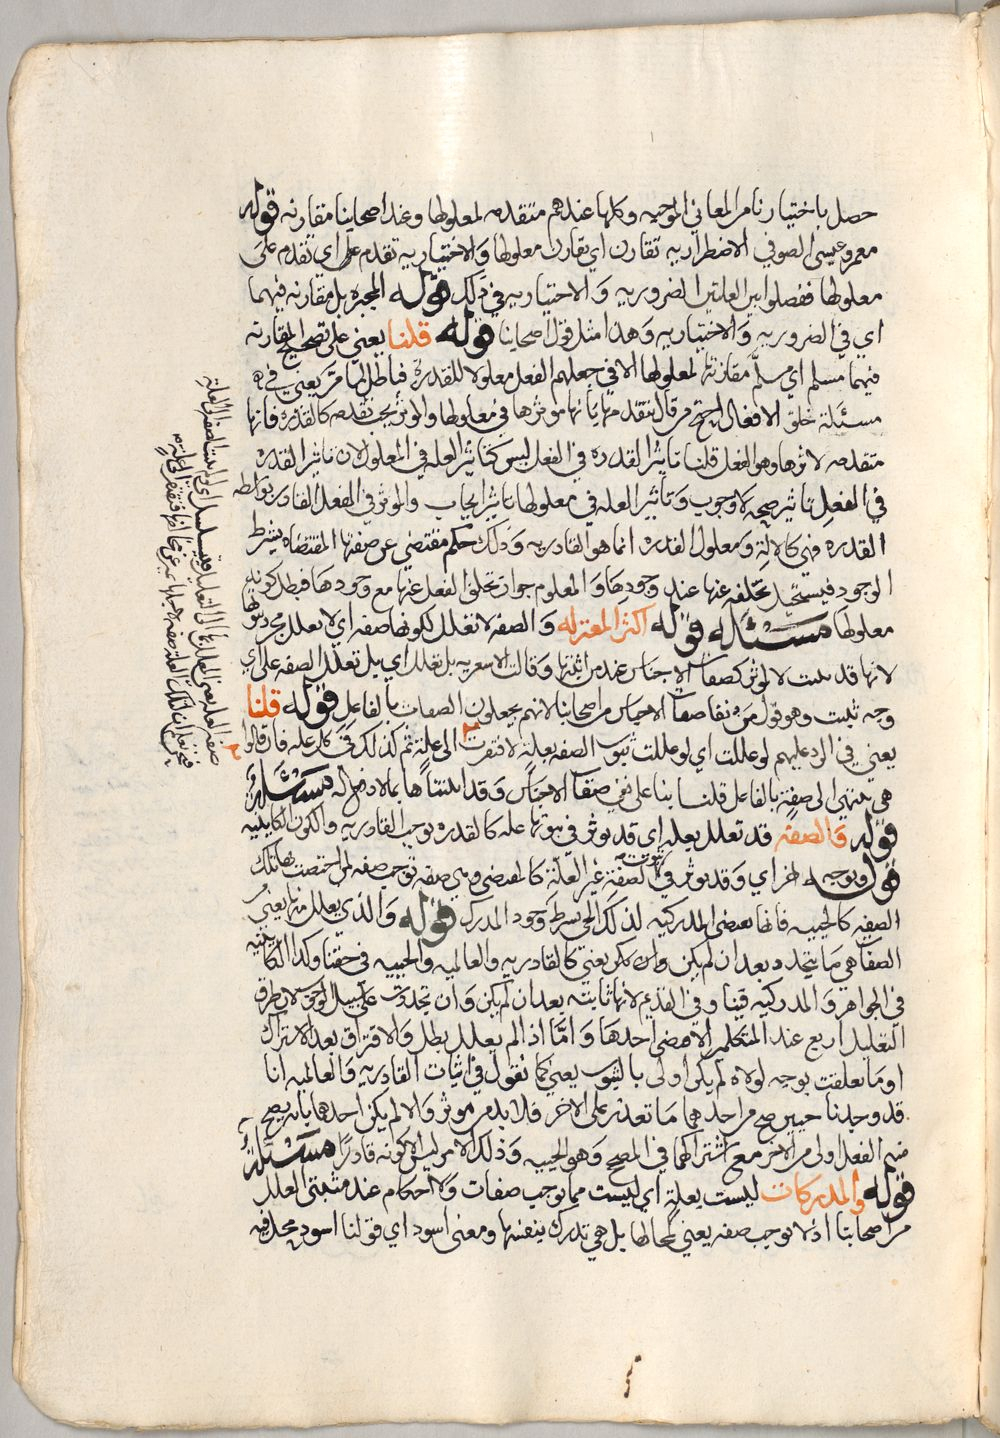 حصل باختيارنا من المعاني الموجبه وكلها عندهم متقدمه لمعلولها وعند اصحابنا مقارنه قوله
معمر وعيسى الصوفي الاضطراريه تقارن اي تقارن معلولها والاختياريه تقدم على اي تقدم على
معلولها ففصلوا بين العلتين الضروريه والاختياريه في ذلك قوله المجبره بل مقارنه فيهما
اي في الضروريه والاختياريه وهذا مثل قول اصحابنا قوله قلنا يعني على تصحيح المقارنه
فيهما مسلم اي سلم مقارنتها لمعلولها الا في جعلهم الفعل معلولا للقدره فباطل لما مر يعني في
مسئلة خلق الافعال احتج من قال بتقدمها بانها موثرها في معلولها والموثر يجب تقدمه كالقدره فانها
متقدمه لاثرها وهو الفعل قلنا تاثير القدره في الفعل ليس كتاثير العله في المعلول لان تاثير القدره
في الفعل تاثير صحه لا وجوب وتأثير العله في معلولها تاثير ايجاب والموثر في الفعل القادر بواسطه
القدره فهي كالالة ومعلول القدره انما هو القادريه وذلك حكم مقتضي عن صفتها المقتضاه بشرط
الوجود فيستحيل تخلفه عنها عند وجودها والمعلوم جواز تخلف الفعل عنها مع وجودها فبطل كونه
معلولها مسئله قوله اكثر المعتزله والصفه لا تعلل لكونها صفه اي لا تعلل بمجرد ثبوتها
لانها قد تثبت لا لموثر كصفات الاجناس عند من اثبتها وقالت الاشعريه بل تعلل اي بل تعلل الصفه على اي
وجه ثبتت وهو قول من نفا صفات الاجناس من اصحابنا لانهم يجعلون الصفات بالفاعل قوله قلنا
يعني في الرد عليهم لو عللت اي لو عللت ثبوت الصفه بعلة لافتقرت الى علة ثم كذلك في كل عله فان قالوا
هي تنتهي الى صفة بالفاعل قلنا بنا على نفي صفات الاجناس وقد اثبتناها بما لا دفع له مسئله
قوله والصفه قد تعلل بعله اي قد يوثر في ثبوتها عله كالقدره توجب القادريه والكون الكاينيه
قوله وبوجه اخر اي وقد يوثر في ثبوت الصفة غير العلة كالمقتضي وهي صفه توجب صفه لمن اختصت بتلك
الصفه كالحييه فانها تقتضي المدركيه لذلك الحي بشرط وجود المدرك قوله والذي يعلل منها يعني من
الصفات هي ما يتجدد بعد ان لم يكن وان يكن يعني كالقادريه والعالميه والحييه في حقنا وكذا الكاينيه
في الجواهر والمدركيه فينا وفي القديم لانها ثابته بعد ان لم يكن وان تجددت على سبيل الوجوب لان طرق
التعليل اربع عند المتكلمين احدها واما اذا لم يعلل بطل والافتراق بعد الاشتراك
او ما تعلقت بوجه لولاه لم يكن اولى بالثبوت يعني كما نقول في اثبات القادريه والعالميه انا
قد وجدنا حيين صح من احدهما ما تعذر على الاخر فلا بد من موثر والا لم يكن احدهما بان يصح
منه الفعل اولى من الاخر مع اشتراكهما في المصحح وهو الحييه وذلك الامر ليس الا كونه قادرا مسئلة
قوله والمدركات ليست بعلة اي ليست مما يوجب صفات ولا احكام عند مثبتي العلل
من اصحابنا اذ لا توجب صفه يعني لمحالها بل هي تدرك بنفسها ومعنى اسود اي قولنا اسود محل فيه